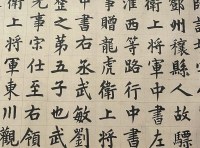 鄧州穰縣人故驃
衛上將軍中書左
淮西等路行中書
事贈龍虎衛上將
中書右丞武敏劉
整之第五子也
先事宋仕至右領
衛上將軍東川觀